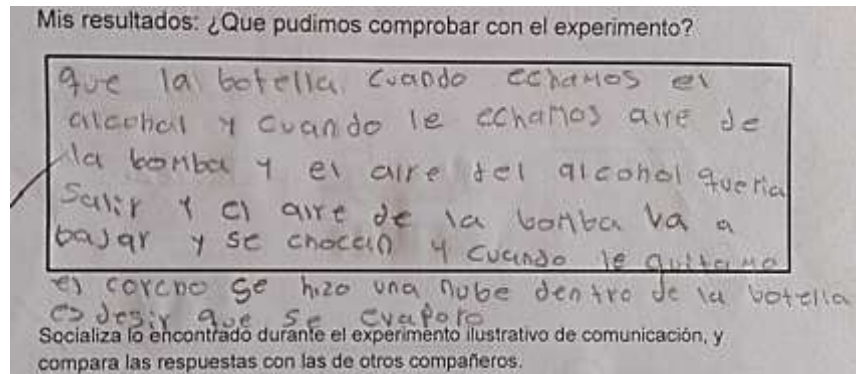 Mis resultados: ¿Que pudimos comprobar con el experimento?
que la botella cuando echamos el
alcohol y cuando le echamos aire de
la bomba y el aire del alcohol queria
Salir y el aire de la bomba va a
bajar y se chocan y cuando le quitamo
el corcho se hizo una nube dentro de la botella
es desir que se evaporo
Socializa lo encontrado durante el experimento ilustrativo de comunicación, y
compara las respuestas con las de otros compañeros.